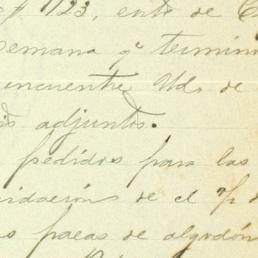 123, este de
semana q^e termin
encuentre Uds. de
adjuntos.
pedidos para las
idación de el
pacas de algodón